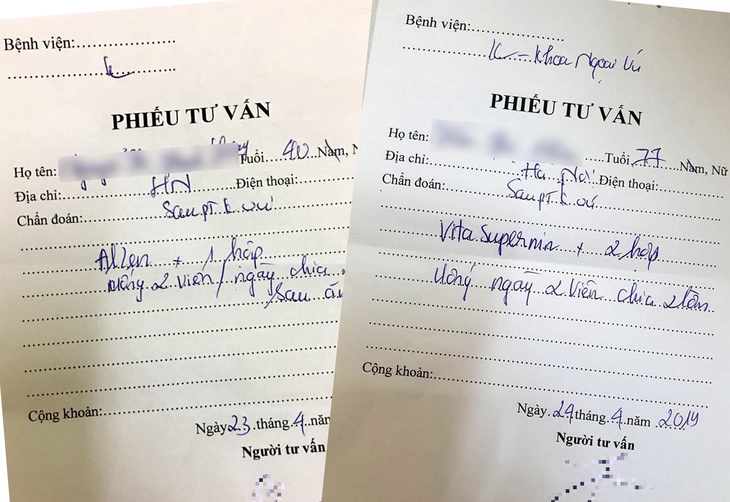 Bệnh viện:
K
PHIẾU TƯ VẤN
Họ tên: Tuổi 40 Nam, N
Địa chỉ: HN Điện thoại:
Chẩn đoán: Sau pt K vú
+ 1 hộp
uống 2 viên / ngày chia
sau ăn
Cộng khoản:
Ngày 23 tháng 4 năm
Người tư vấn
Bệnh viện:
K - Khoa Ngoại Vú
PHIẾU TƯ VẤN
Họ tên: Tuổi 77 Nam, Nữ
Địa chỉ: Hà Nội Điện thoại:
Chẩn đoán: Sau pt K vú
Vita Supermin + 2 hộp
Uống ngày 2 viên chia 2 lần
Cộng khoản:
Ngày 24 tháng 4 năm 2019
Người tư vấn